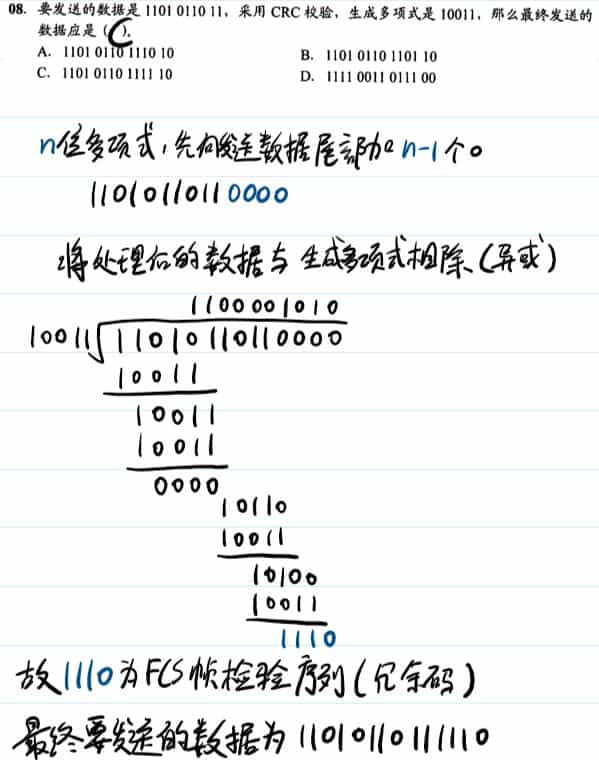 08. 要发送的数据是 1101 0110 11，采用 CRC 校验，生成多项式是 10011，那么最终发送的
数据应是（C）.
A. 1101 0110 1110 10 B. 1101 0110 1101 10
C. 1101 0110 1111 10 D. 1111 0011 0111 00
n位多项式，先向发送数据尾部加 n-1 个0
11010110110000
将处理后的数据与生成多项式相除（异或）
1100001010
10011 11010110110000
10011
10011
10011
0000
10110
10011
10100
10011
1110
故1110为FCS帧检验序列（冗余码）
最终要发送的数据为 11010110111110